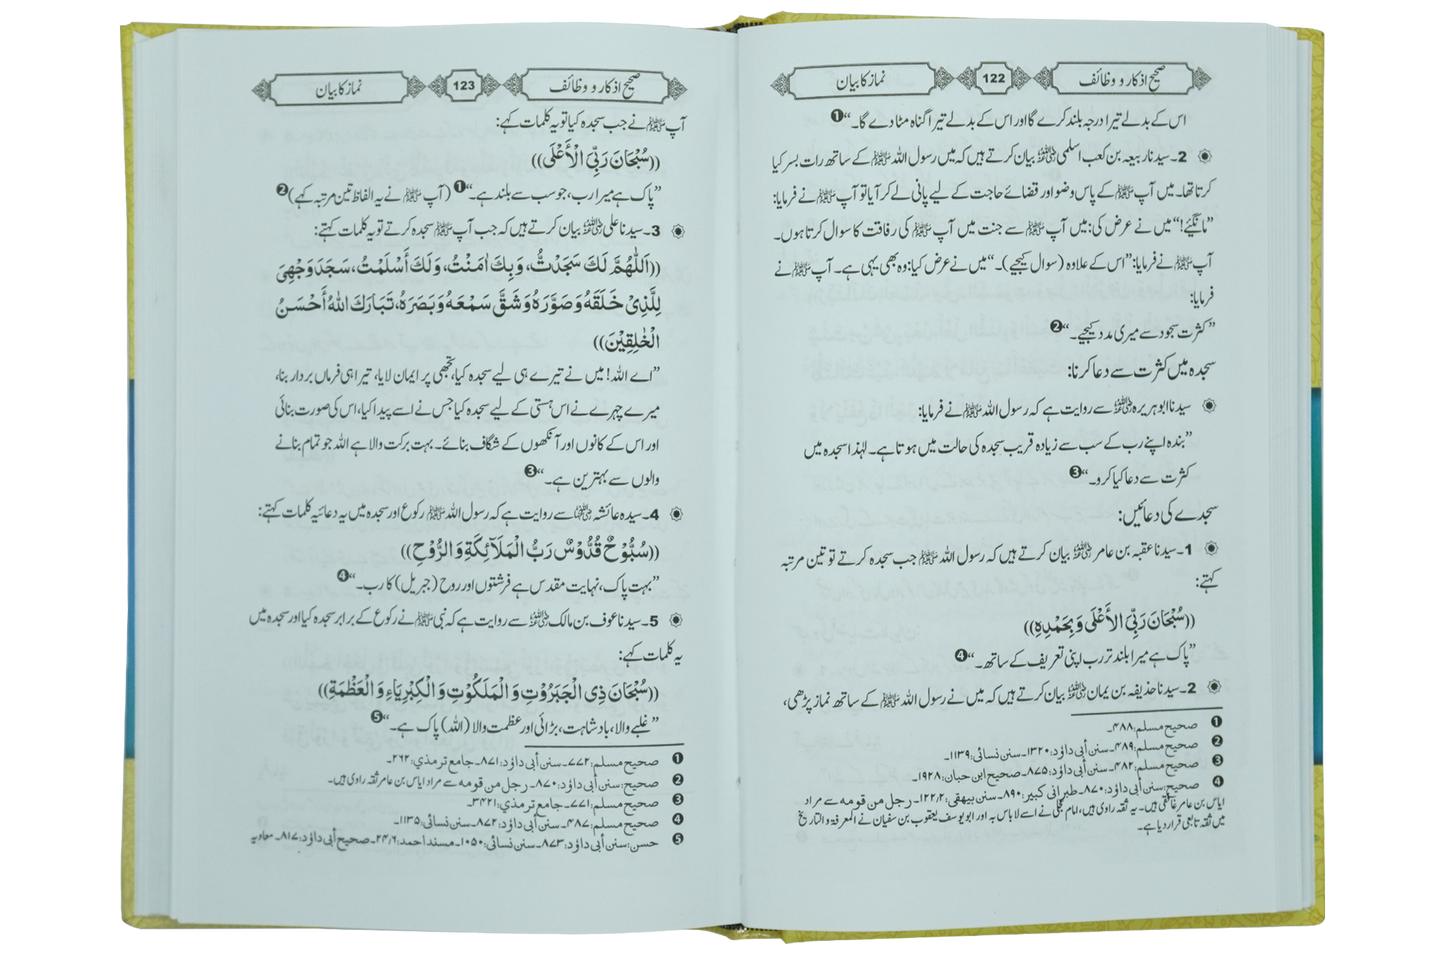 صحیح اذکار و وظائف 122 نماز کا بیان
اس کے بدلے تیرا درجہ بلند کرے گا اور اس کے بدلے تیرا گناہ مٹا دے گا۔“ ❶
2۔سیدنا ربیعہ بن کعب اسلمی ؓ بیان کرتے ہیں کہ میں رسول اللہ ﷺ کے ساتھ رات بسر کیا
کرتا تھا۔ میں آپ ﷺ کے پاس وضو اور قضائے حاجت کے لیے پانی لے کر آیا تو آپ ﷺ نے فرمایا:
”مانگئے!“ میں نے عرض کی: میں آپ ﷺ سے جنت میں آپ ﷺ کی رفاقت کا سوال کرتا ہوں۔
آپ ﷺ نے فرمایا: ”اس کے علاوہ (سوال کیجیے)۔“ میں نے عرض کیا: وہ بھی یہی ہے۔ آپ ﷺ نے
فرمایا:
”کثرت سجود سے میری مدد کیجیے۔“ ❷
سجدہ میں کثرت سے دعا کرنا:
سیدنا ابو ہریرہ ؓ سے روایت ہے کہ رسول اللہ ﷺ نے فرمایا:
”بندہ اپنے رب کے سب سے زیادہ قریب سجدہ کی حالت میں ہوتا ہے۔ لہٰذا سجدہ میں
کثرت سے دعا کیا کرو۔“ ❸
سجدے کی دعائیں:
1۔سیدنا عقبہ بن عامر ؓ بیان کرتے ہیں کہ رسول اللہ ﷺ جب سجدہ کرتے تو تین مرتبہ
کہتے:
((سُبْحَانَ رَبِّیَ الأَعْلَی وَبِحَمْدِہِ))
”پاک ہے میرا بلند تر رب اپنی تعریف کے ساتھ۔“ ❹
2۔سیدنا حذیفہ بن یمان ؓ بیان کرتے ہیں کہ میں نے رسول اللہ ﷺ کے ساتھ نماز پڑھی،
❶ صحیح مسلم: ۴۸۸۔
❷ صحیح مسلم: ۴۸۹۔ سنن أبی داؤد: ۱۳۲۰۔ سنن نسائی: ۱۱۳۹۔
❸ صحیح مسلم: ۴۸۲۔ سنن أبی داؤد: ۸۷۵۔ صحیح ابن حبان: ۱۹۲۸۔
❹ صحیح: سنن أبی داؤد: ۸۷۰۔ طبرانی کبیر: ۸۹۰۔ سنن بیهقی: ۱۲۲/۲۔ رجل من قومه سے مراد
ایاس بن عامر غافقی ہیں۔ یہ ثقہ راوی ہیں، امام عجلی نے اسے لا باس بہ اور ابو یوسف یعقوب بن سفیان نے المعرفۃ والتاریخ
میں ثقہ تابعی قرار دیا ہے۔
صحیح اذکار و وظائف 123 نماز کا بیان
آپ ﷺ نے جب سجدہ کیا تو یہ کلمات کہے:
((سُبْحَانَ رَبِّیَ الْأَعْلَی))
”پاک ہے میرا رب، جو سب سے بلند ہے۔“ ❶ (آپ ﷺ نے یہ الفاظ تین مرتبہ کہے) ❷
3۔سیدنا علی ؓ بیان کرتے ہیں کہ جب آپ ﷺ سجدہ کرتے تو یہ کلمات کہتے:
((اَللّٰهُمَّ لَكَ سَجَدْتُّ، وَبِكَ اٰمَنْتُ، وَلَكَ أَسْلَمْتُ، سَجَدَ وَجْهِیَ
لِلَّذِیْ خَلَقَهُ وَصَوَّرَهُ وَشَقَّ سَمْعَهُ وَبَصَرَهُ، تَبَارَكَ اللهُ أَحْسَنُ
الْخٰلِقِیْنَ))
”اے اللہ! میں نے تیرے ہی لیے سجدہ کیا، تجھی پر ایمان لایا، تیرا ہی فرماں بردار بنا،
میرے چہرے نے اس ہستی کے لیے سجدہ کیا جس نے اسے پیدا کیا، اس کی صورت بنائی
اور اس کے کانوں اور آنکھوں کے شگاف بنائے۔ بہت برکت والا ہے اللہ جو تمام بنانے
والوں سے بہترین ہے۔“ ❸
4۔سیدہ عائشہ ؓ سے روایت ہے کہ رسول اللہ ﷺ رکوع اور سجدہ میں یہ دعائیہ کلمات کہتے:
((سُبُّوْحٌ قُدُّوْسٌ رَبُّ الْمَلَآئِكَةِ وَالرُّوْحِ))
”بہت پاک، نہایت مقدس ہے فرشتوں اور روح (جبریل) کا رب۔“ ❹
5۔سیدنا عوف بن مالک ؓ سے روایت ہے کہ نبی ﷺ نے رکوع کے برابر سجدہ کیا اور سجدہ میں
یہ کلمات کہے:
((سُبْحَانَ ذِی الْجَبَرُوْتِ وَالْمَلَكُوْتِ وَالْكِبْرِیَاءِ وَالْعَظْمَةِ))
”غلبے والا، بادشاہت، بڑائی اور عظمت والا (اللہ) پاک ہے۔“ ❺
❶ صحیح مسلم: ۷۷۲۔ سنن أبی داؤد: ۸۷۱۔ جامع ترمذی: ۲۶۲۔
❷ صحیح: سنن أبی داؤد: ۸۷۰۔ رجل من قومه سے مراد ایاس بن عامر ثقہ راوی ہیں۔
❸ صحیح مسلم: ۷۷۱۔ جامع ترمذی: ۳۴۲۱۔
❹ صحیح مسلم: ۴۸۷۔ سنن أبی داؤد: ۸۷۲۔ سنن نسائی: ۱۱۳۵۔
❺ حسن: سنن أبی داؤد: ۸۷۳۔ سنن نسائی: ۱۰۵۰۔ مسند احمد: ۲۴/۶۔ صحیح أبی داؤد: ۸۱۷۔ معاویہ